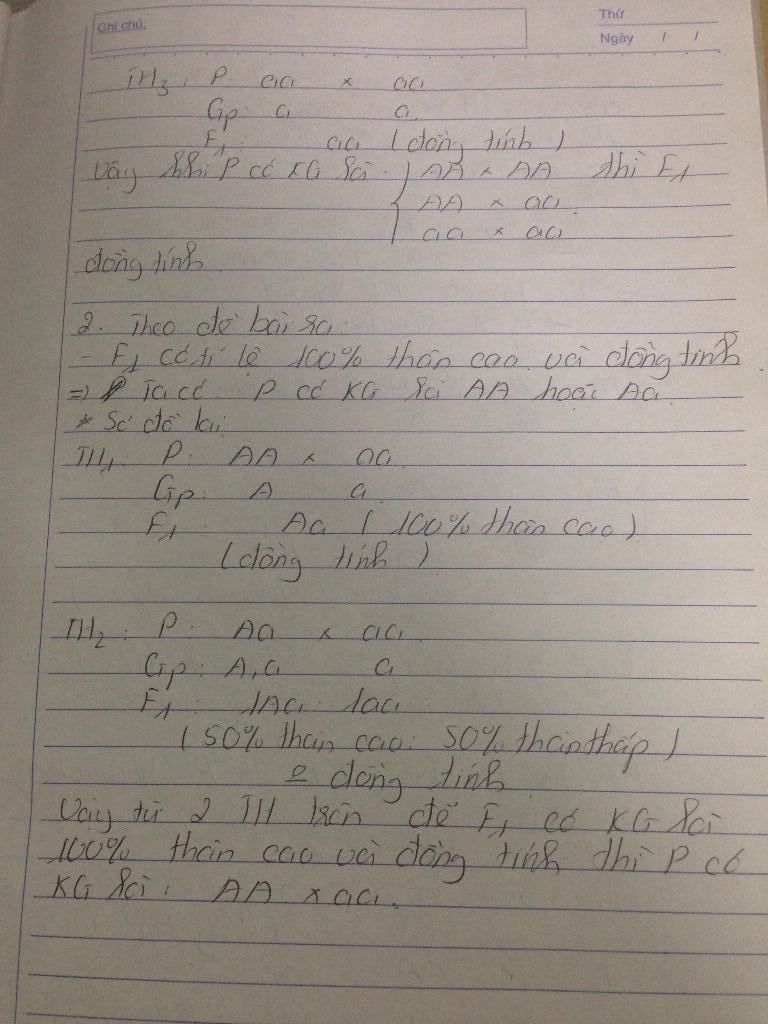 Ghi chú:
Thứ
Ngày / /
TH3: P: aa x aa
Gp: a a
F1: aa (đồng tính)
Vậy khi P có KG là: { AA x AA thì F1
AA x aa
aa x aa
đồng tính
2. Theo đề bài ra:
- F1 có tỉ lệ 100% thân cao và đồng tính
=> Ta có: P có KG là AA hoặc Aa
* Sơ đồ lai:
TH1: P: AA x aa
Gp: A a
F1: Aa (100% thân cao)
(đồng tính)
TH2: P: Aa x aa
Gp: A,a a
F1: 1Aa: 1aa
(50% thân cao: 50% thân thấp)
đồng tính
Vậy từ 2 TH trên để F1 có KG là
100% thân cao và đồng tính thì P có
KG là: AA x aa.